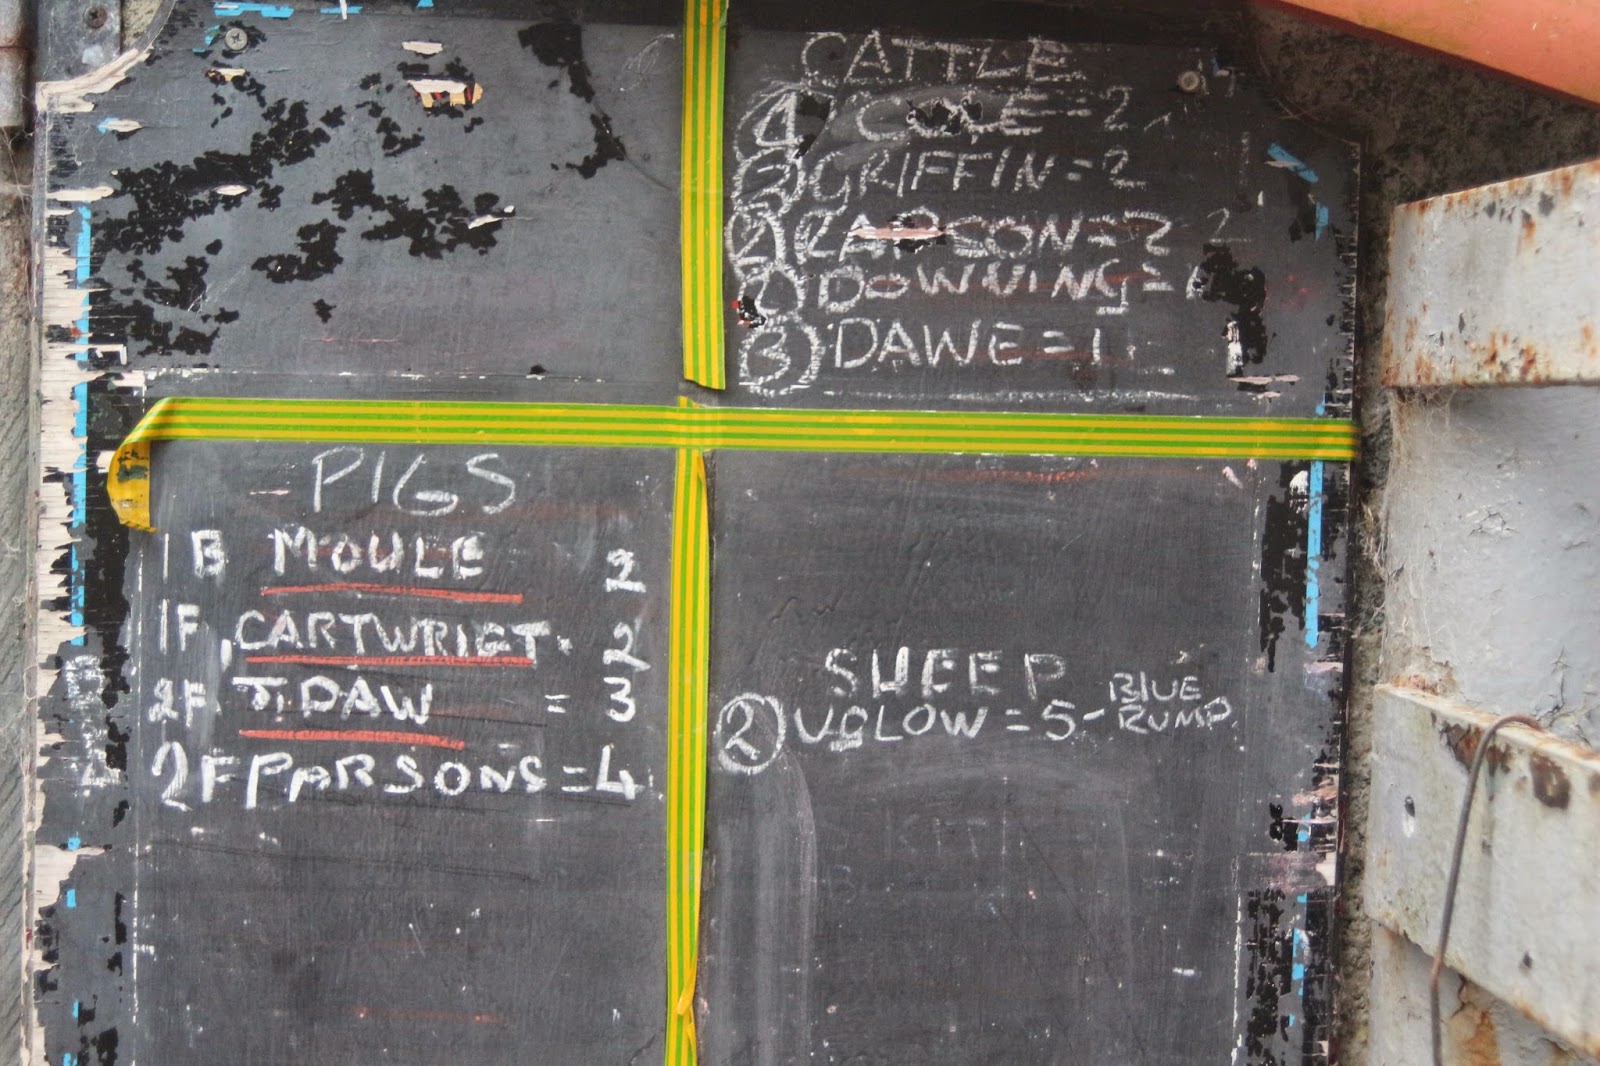 CATTLE
④ COLE = 2
GRIFFIN = 2
② RAPSON = 2
DOWNING =
③ DAWE = 1
PIGS
1B MOULE 2
1F CARTWRIGT 2
2F T. DAW = 3
2F PARSONS = 4
SHEEP
② UGLOW = 5 - BLUE
RUMP